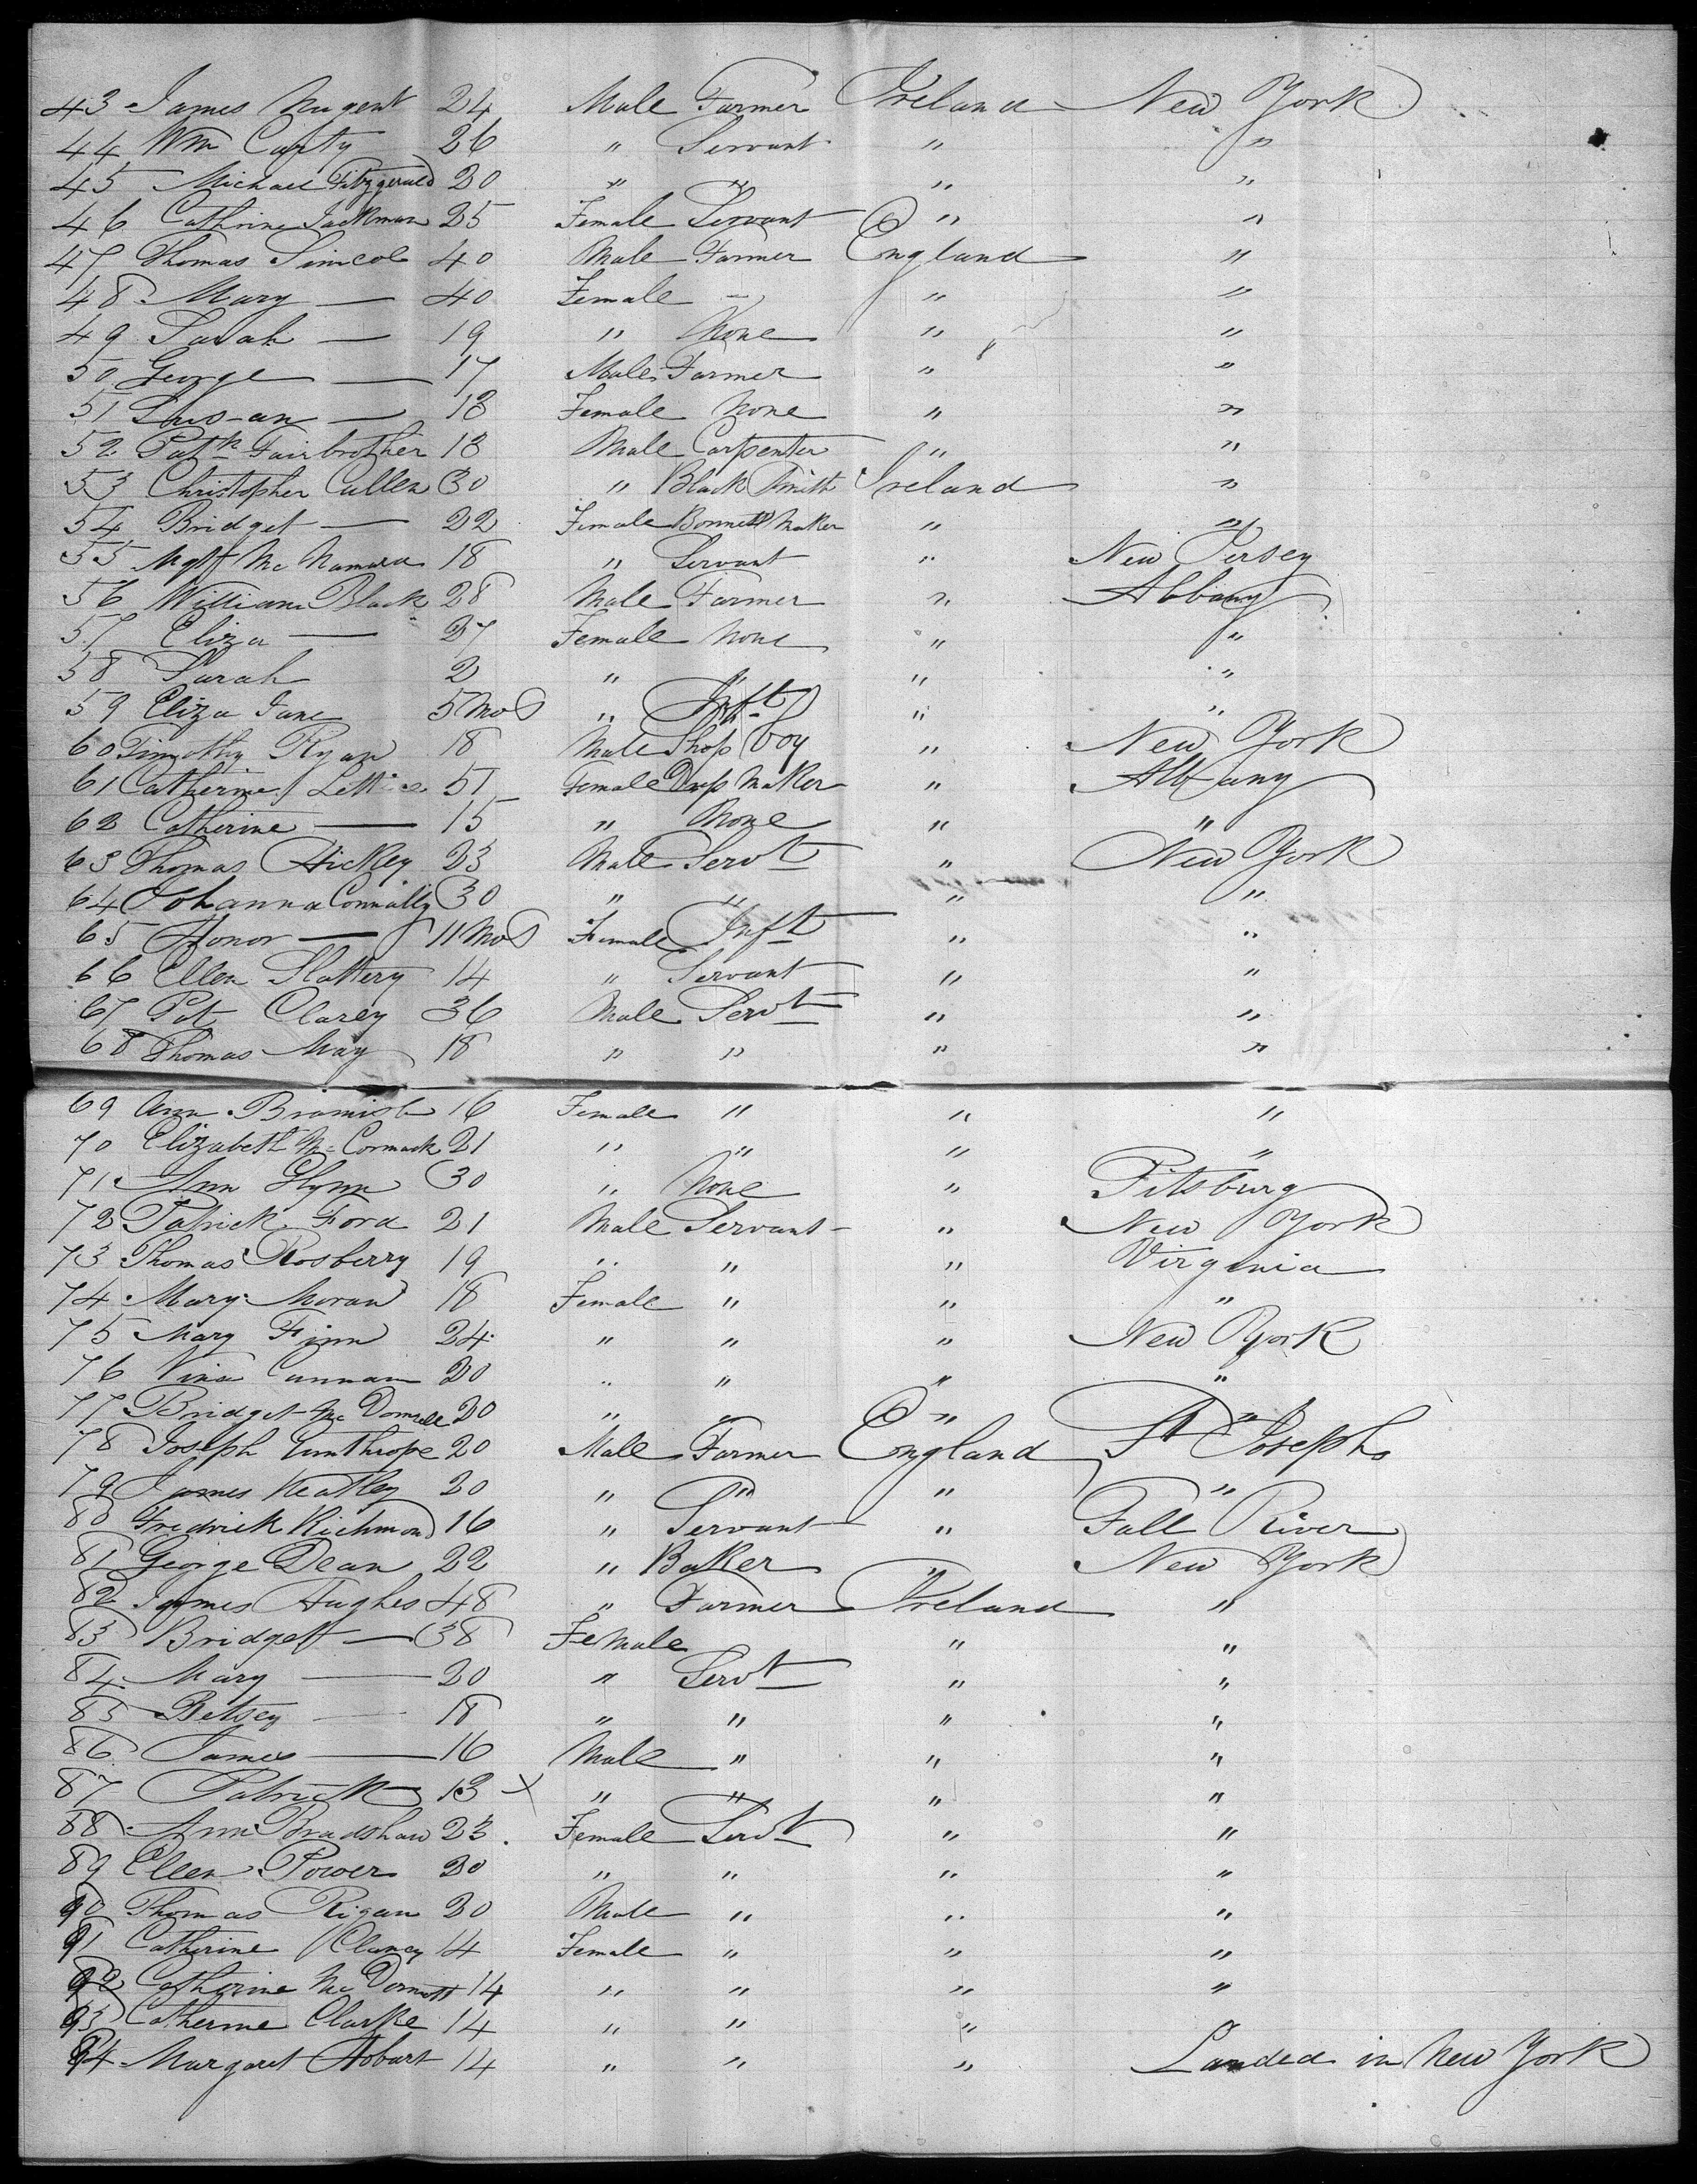 43 James Nugent 24 Male Farmer Ireland New York
44 Wm Carty 26 " Servant " "
45 Michael Fitzgerald 20 " " " "
46 Cathrine Jackman 25 Female Servant " "
47 Thomas Simcol 40 Male Farmer England "
48 Mary — 40 Female — " "
49 Sarah — 19 " None " "
50 George — 17 Male Farmer " "
51 Sus-an — 13 Female None " "
52 Patk Fairbrother 18 Male Carpenter " "
53 Christopher Cullen 30 " Black Smith Ireland "
54 Bridget — 22 Female Bonnett Maker " "
55 Mgt Mc Namara 18 " Servant " New Jersey
56 William Black 28 Male Farmer " Albany
57 Eliza — 27 Female None " "
58 Sarah 2 " " " "
59 Eliza Jane 5 Mos " Inft " "
60 Timothy Ryan 18 Male Shop boy " New York
61 Catherine 51 Female Dress Maker " Albany
62 Catherine — 15 " None " "
63 Thomas Hickey 23 Male Servt " New York
64 Johanna Connolly 30 " " " "
65 Honor — 11 Mos Female Inft " "
66 Ellen Slattery 14 " Servant " "
67 Pat Clarey 36 Male Servt " "
68 Thomas May 18 " " " "
69 Ann 16 Female " " "
70 Elizabeth Mc Cormack 21 " " " "
71 Ann Glynn 30 " None " Pitsburg
72 Patrick Ford 21 Male Servant " New York
73 Thomas Rosberry 19 " " " Virginia
74 Mary Moran 18 Female " " "
75 Mary Finn 24 " " " New York
76 Cunnam 20 " " " "
77 Bridget Mc Donnell 20 " " " "
78 Joseph Gunthrope 20 Male Farmer England St Josephs
79 James Keatley 20 " " " "
80 Fredrick Richmond 16 " Servant " Fall River
81 George Dean 22 " Baker " New York
82 James Hughes 48 " Farmer Ireland "
83 Bridget — 38 Female " "
84 Mary — 20 " Servt " "
85 Betsey — 18 " " " "
86 James — 16 Male " " "
87 Patrick 13 x " " " "
88 Ann Bradshaw 23 Female Servt " "
89 Ellen Power 20 " " " "
90 Thomas Rigan 20 Male " " "
91 Catherine Clancy 14 Female " " "
92 Catherine Mc Dermott 14 " " " "
93 Catherine Clarke 14 " " "
94 Margaret Hobart 14 " " " Landed in New York